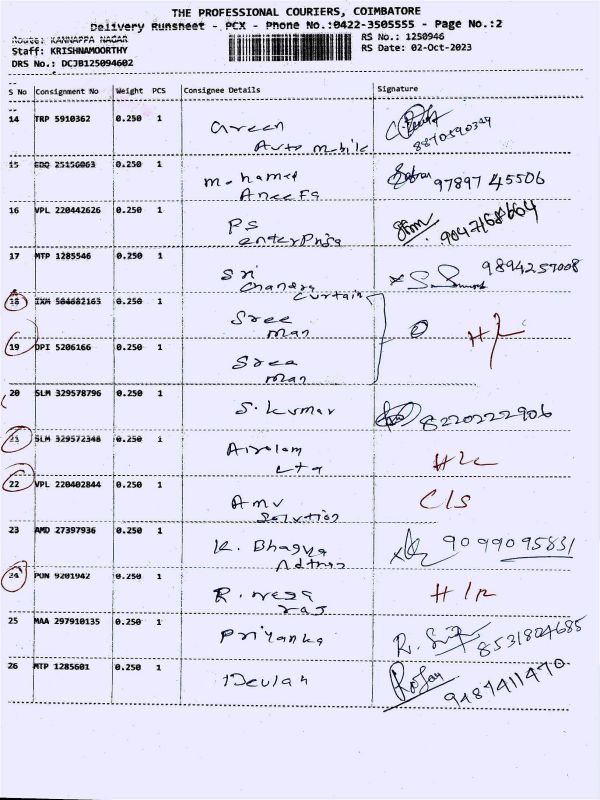 THE PROFESSIONAL COURIERS, COIMBATORE
Delivery Runsheet - PCX - Phone No.:0422-3505555 - Page No.:2
Route: KANNAPPA NAGAR
RS No.: 1250946
Staff: KRISHNAMOORTHY
RS Date: 02-Oct-2023
DRS No.: DCJB125094602
S No Consignment No Weight PCS Consignee Details Signature
14 TRP 5910362 0.250 1 Green
Auto mobile
8870590349
15 EDQ 25156063 0.250 1 Mohamed
Aneefa
97897 45506
16 VPL 220442626 0.250 1 PS
enterprise
9047168664
17 MTP 1285546 0.250 1 Sri
Chandra
Curtain
9894257008
18 IXM 504682163 0.250 1 Sree
man
19 DPI 5206166 0.250 1 Sree
man
20 SLM 329578796 0.250 1 S. Kumar 8220222906
21 SLM 329572348 0.250 1
22 VPL 220402844 0.250 1 Amv
Solution
C/S
23 AMD 27397936 0.250 1 K. Bhagya
9099095831
24 PUN 9201942 0.250 1 R.
raj
25 MAA 297910135 0.250 1 Priyanka 8531804685
26 MTP 1285601 0.250 1 9487411470